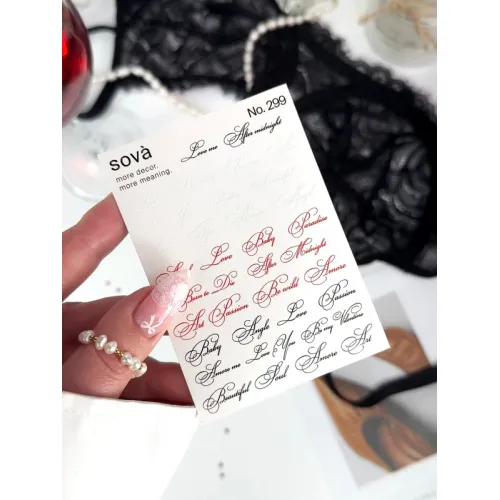 sovà
more decor.
more meaning.
No. 299
Love me After midnight
Soul Love Baby Paradise
Born to Die After Midnight
Art Passion Be wild Amore
Baby Angle Love Passion
Amore me Love You Be my Valentine
Beautiful Soul Amore Art